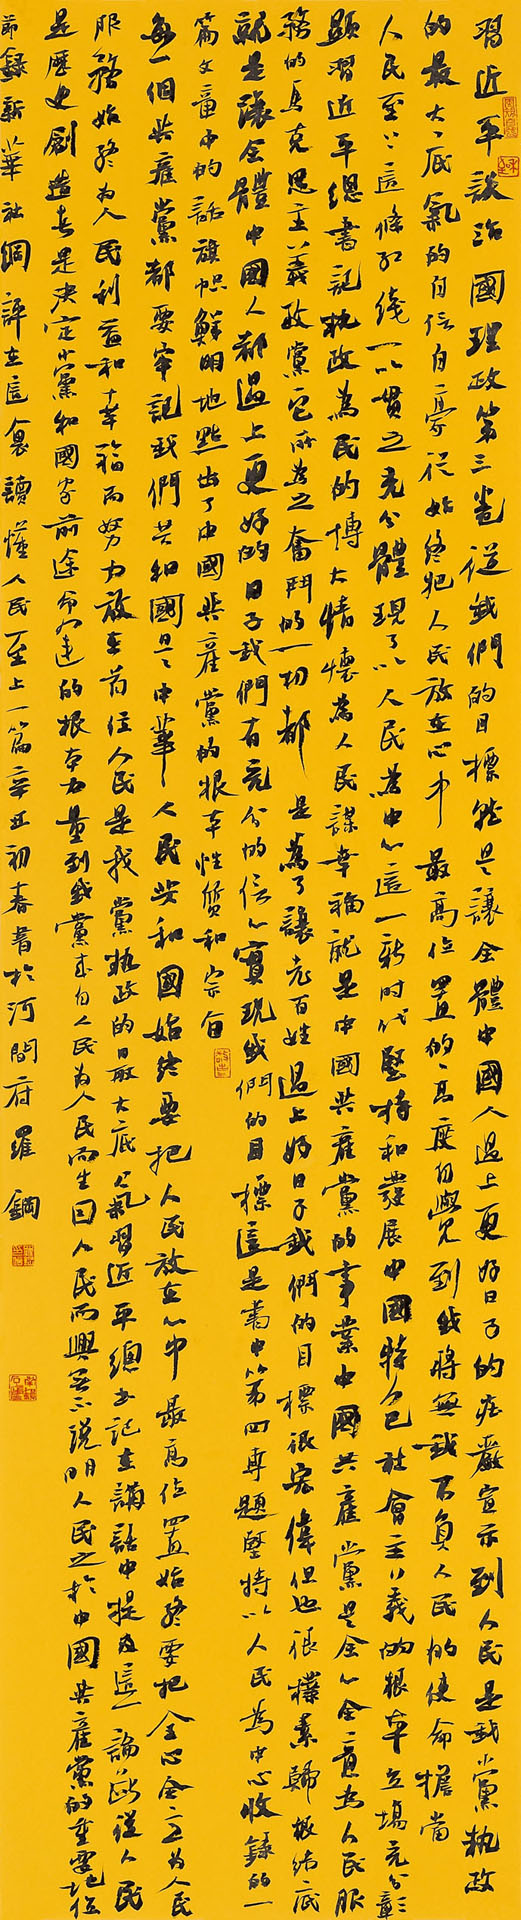 習近平談治國理政第三卷從我們的目標就是讓全體中國人過上更好日子的莊嚴宣示到人民是我黨執政
的最大底氣的自信自豪從始終把人民放在心中最高位置的高度自覺到我將無我不負人民的使命擔當
人民至上這條紅綫一以貫之充分體現了以人民為中心這一新时代堅持和發展中國特色社會主義的根本立場充分彰
顯習近平總書記执政為民的博大情懷為人民謀幸福就是中國共產黨的事業中國共產黨是全心全意為人民服
務的馬克思主義政黨它所為之奮鬥的一切都是為了讓老百姓過上好日子我們的目標很宏偉但也很樸素歸根结底
就是讓全體中國人都過上更好的日子我們有充分的信心實現我們的目標這是書中第四專題堅持以人民為中心收錄的一
篇文章中的話旗幟鮮明地點出了中國共產黨的根本性質和宗旨
每一個共產黨都要牢記我們共和國是中華人民共和國始终要把人民放在心中最高位置始終要把全心全意为人民
服務始終为人民利益和幸福而努力放在首位人民是我黨執政的最大底氣習近平總书記在講話中提及這一論斷從人民
是歷史創造者是決定黨和國家前途命运的根本力量到我黨來自人民為人民而生因人民而興無不說明人民之於中國共產黨的重要地位
節錄新華社網評在這裏讀懂人民至上一篇辛丑初春書於河間府 羅鋼